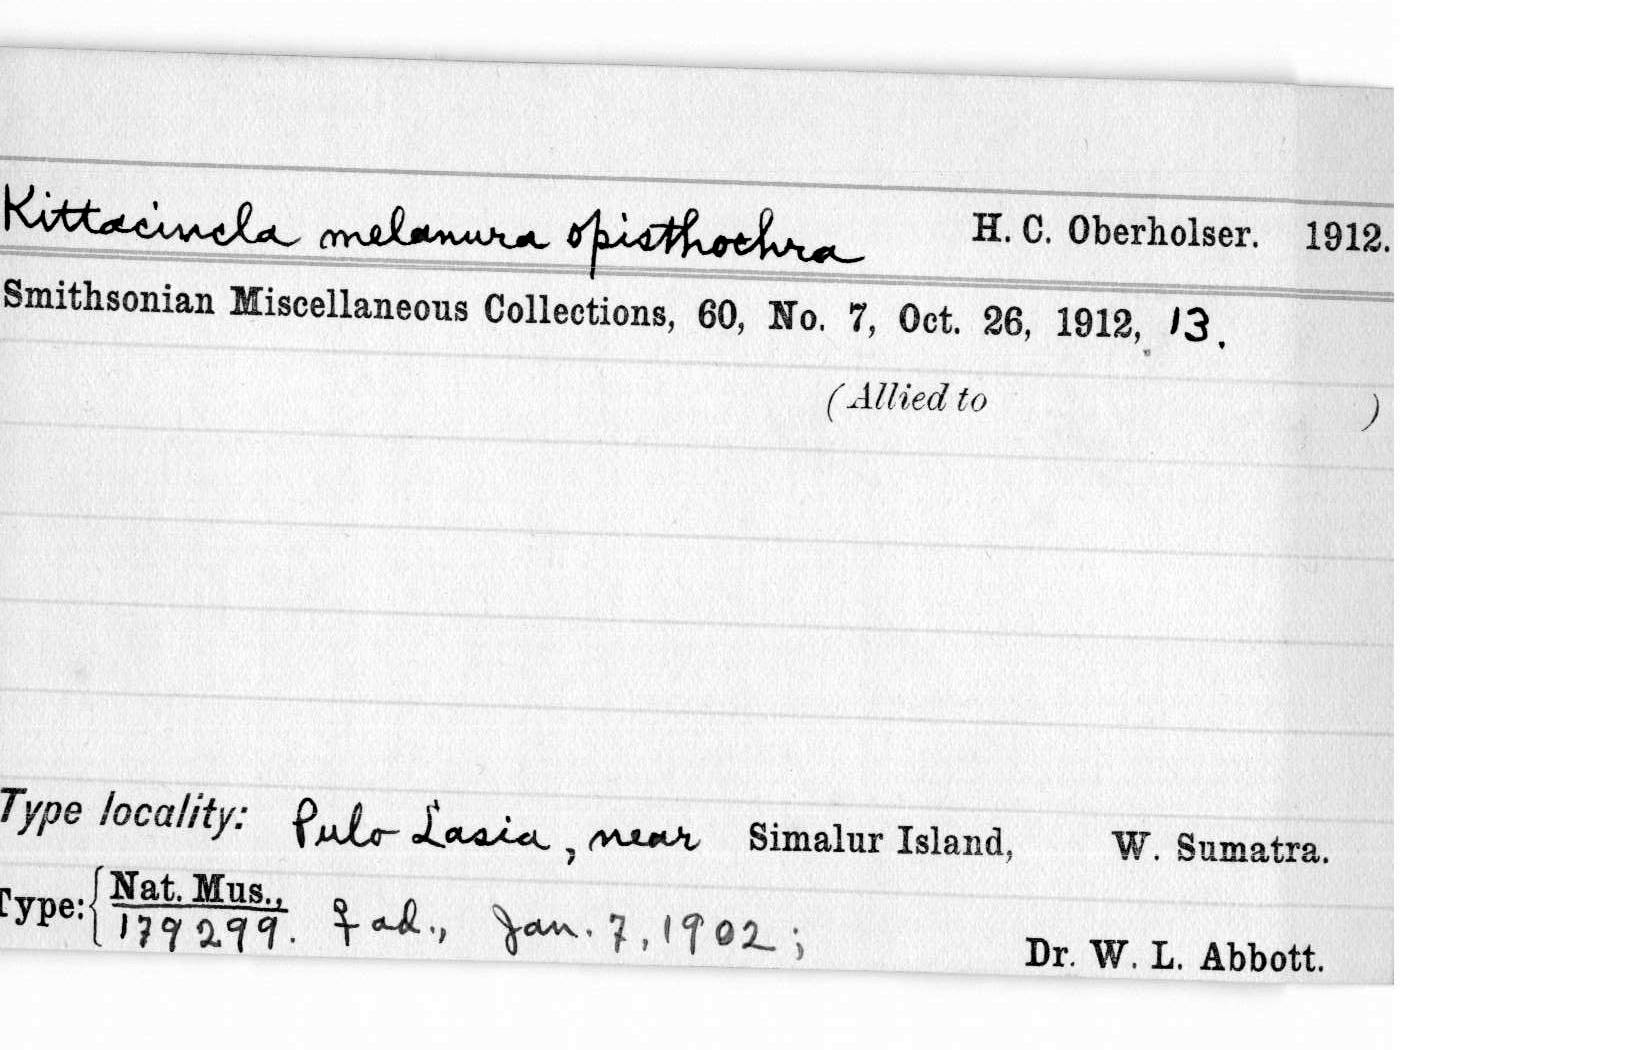 Kittacincla melanura opisthochra H. C. Oberholser. 1912.
Smithsonian Miscellaneous Collections, 60, No. 7, Oct. 26, 1912, 13.
(Allied to )
Type locality: Pulo Lasia, near Simalur Island, W. Sumatra.
Type: { Nat. Mus.,
179299. ♀ ad., Jan. 7, 1902; Dr. W. L. Abbott.